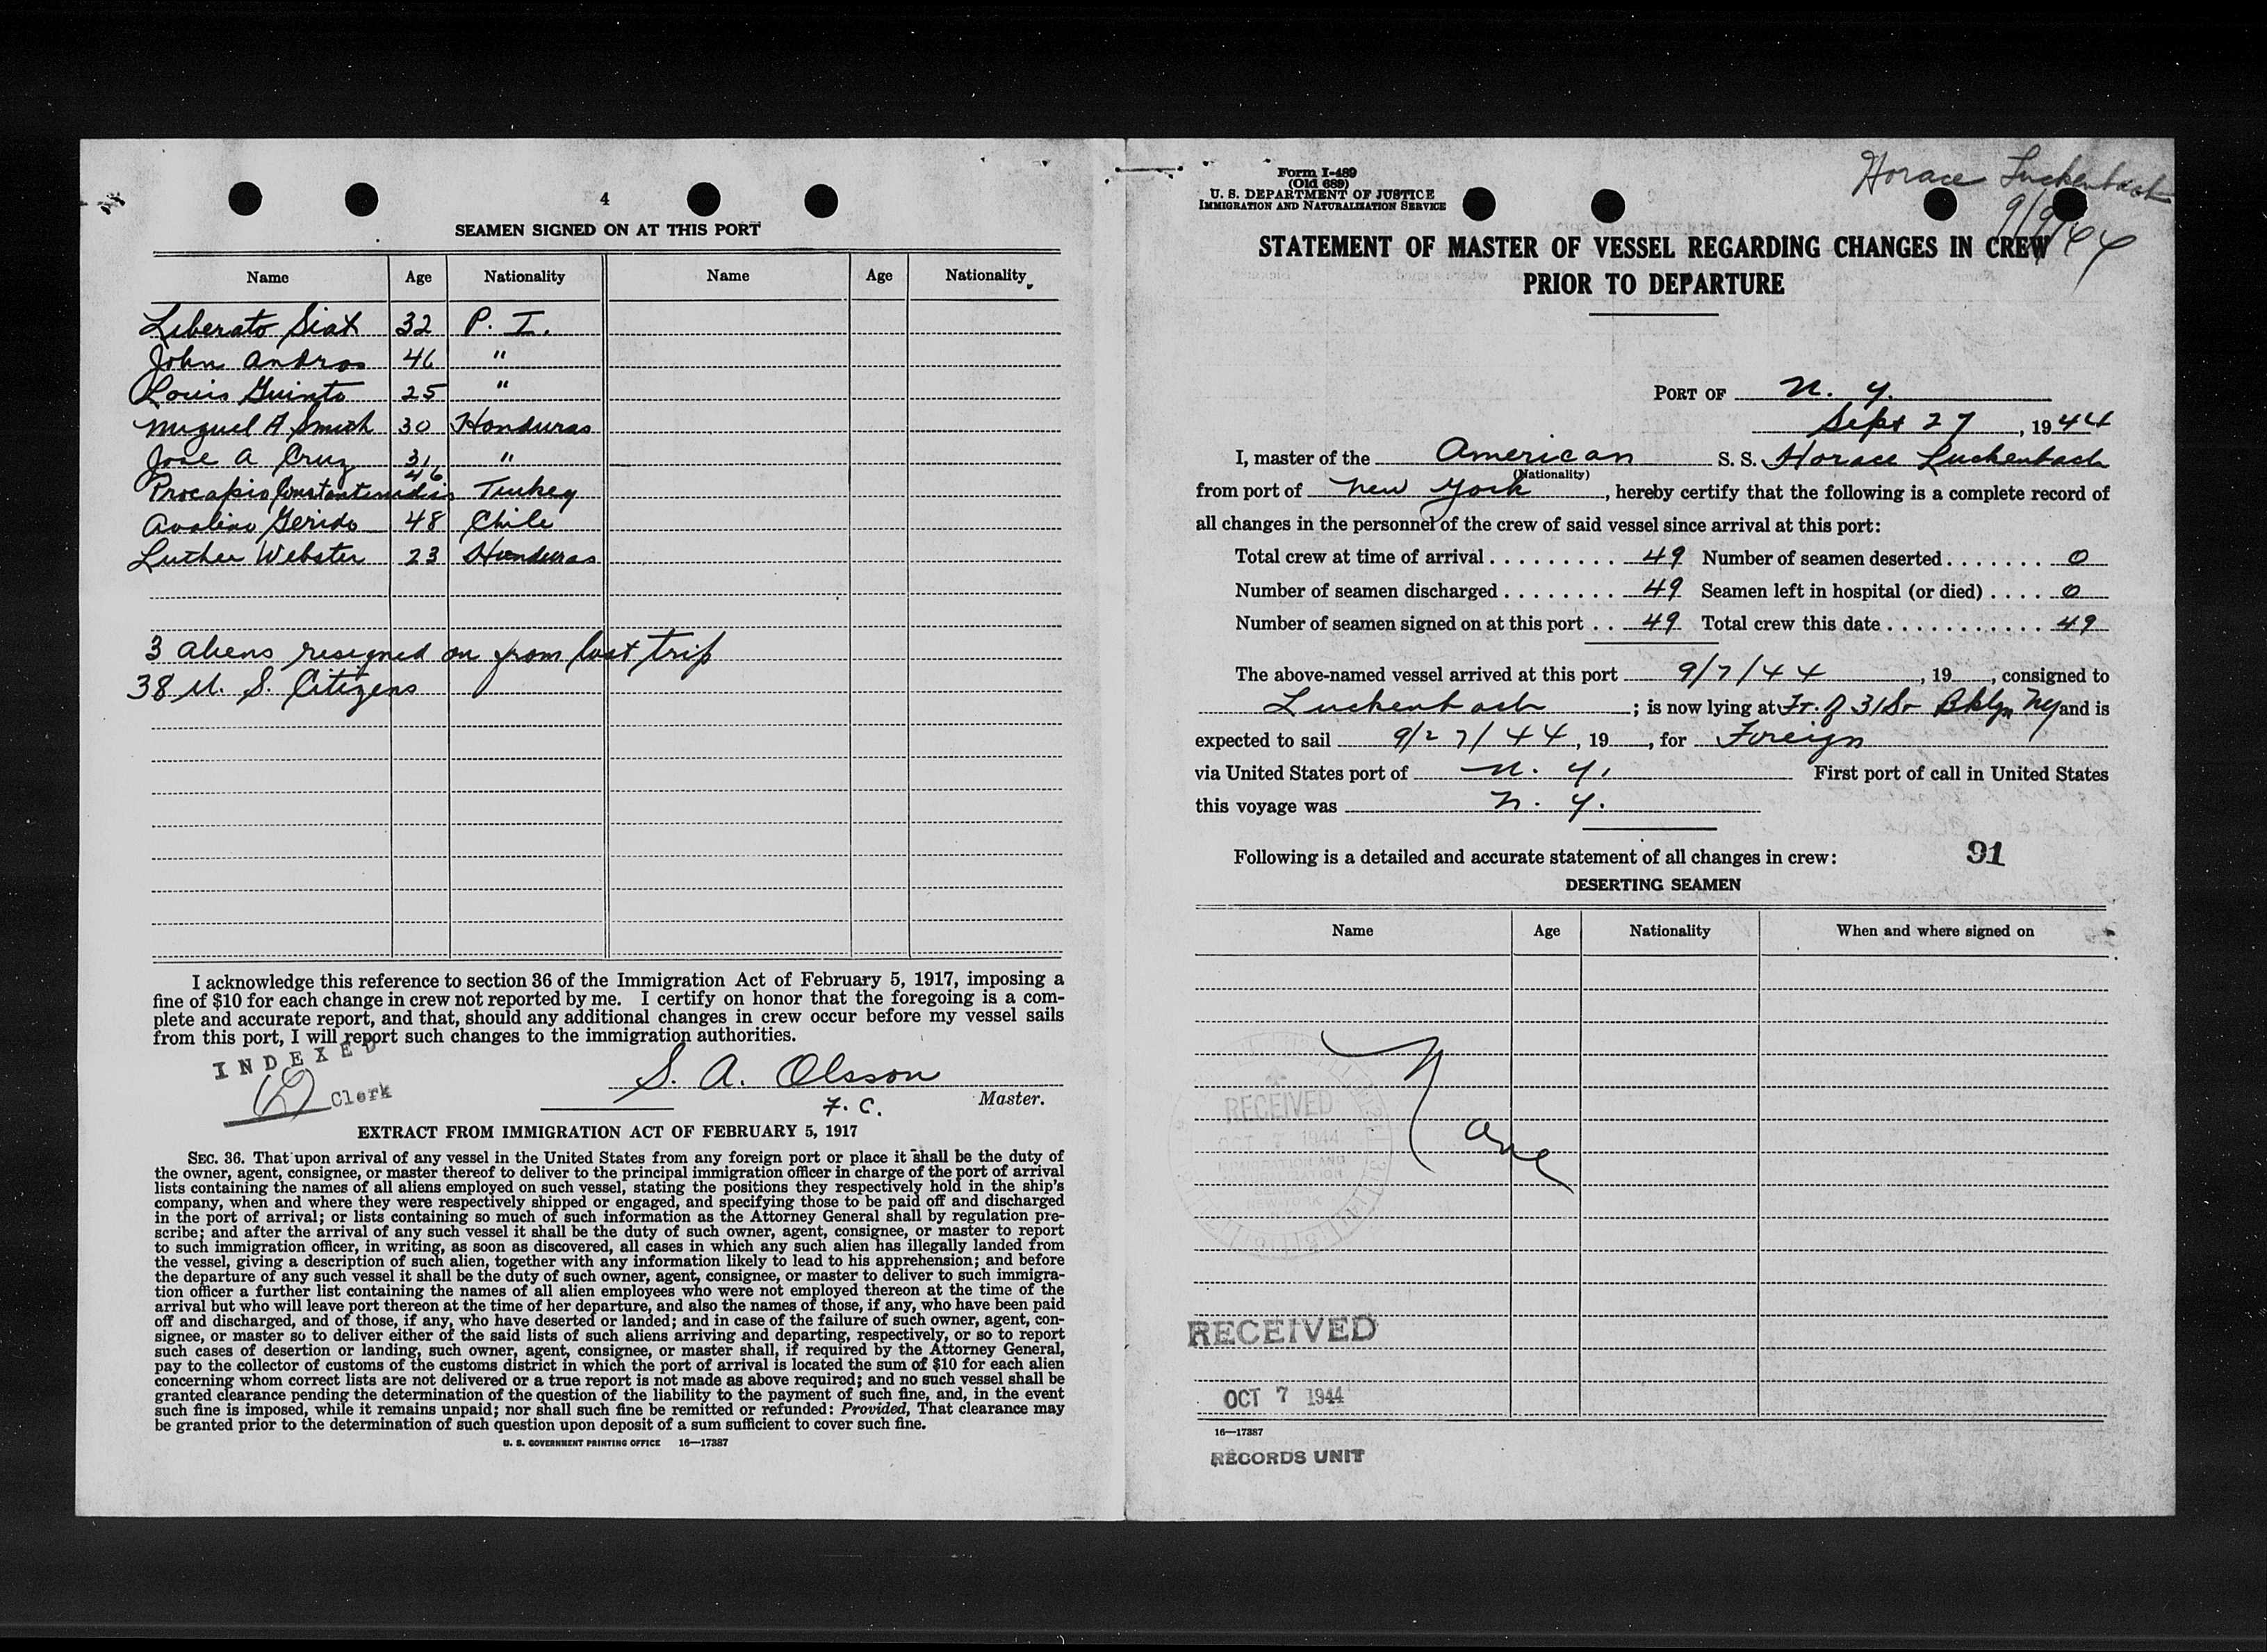 4
SEAMEN SIGNED ON AT THIS PORT
Name Age Nationality Name Age Nationality
Liberato Siat 32 P. I.
John Andros 46 "
Louis Guinto 25 "
Miguel A Smith 30 Honduras
Jose A Cruz 31 "
Procapis Constantinidis 46 Turkey
Avalino Gerido 48 Chile
Luther Webster 23 Honduras
3 aliens resigned on from last trip
38 U. S. Citizens
I acknowledge this reference to section 36 of the Immigration Act of February 5, 1917, imposing a
fine of $10 for each change in crew not reported by me. I certify on honor that the foregoing is a com-
plete and accurate report, and that, should any additional changes in crew occur before my vessel sails
from this port, I will report such changes to the immigration authorities.
INDEXED
Clerk
S. A. Olsson
F. C.
Master.
EXTRACT FROM IMMIGRATION ACT OF FEBRUARY 5, 1917
SEC. 36. That upon arrival of any vessel in the United States from any foreign port or place it shall be the duty of
the owner, agent, consignee, or master thereof to deliver to the principal immigration officer in charge of the port of arrival
lists containing the names of all aliens employed on such vessel, stating the positions they respectively hold in the ship's
company, when and where they were respectively shipped or engaged, and specifying those to be paid off and discharged
in the port of arrival; or lists containing so much of such information as the Attorney General shall by regulation pre-
scribe; and after the arrival of any such vessel it shall be the duty of such owner, agent, consignee, or master to report
to such immigration officer, in writing, as soon as discovered, all cases in which any such alien has illegally landed from
the vessel, giving a description of such alien, together with any information likely to lead to his apprehension; and before
the departure of any such vessel it shall be the duty of such owner, agent, consignee, or master to deliver to such immigra-
tion officer a further list containing the names of all alien employees who were not employed thereon at the time of the
arrival but who will leave port thereon at the time of her departure, and also the names of those, if any, who have been paid
off and discharged, and of those, if any, who have deserted or landed; and in case of the failure of such owner, agent, con-
signee, or master so to deliver either of the said lists of such aliens arriving and departing, respectively, or so to report
such cases of desertion or landing, such owner, agent, consignee, or master shall, if required by the Attorney General,
pay to the collector of customs of the customs district in which the port of arrival is located the sum of $10 for each alien
concerning whom correct lists are not delivered or a true report is not made as above required; and no such vessel shall be
granted clearance pending the determination of the question of the liability to the payment of such fine, and, in the event
such fine is imposed, while it remains unpaid; nor shall such fine be remitted or refunded: Provided, That clearance may
be granted prior to the determination of such question upon deposit of a sum sufficient to cover such fine.
U. S. GOVERNMENT PRINTING OFFICE 16—17387
Form I-489
(Old 689)
U. S. DEPARTMENT OF JUSTICE
IMMIGRATION AND NATURALIZATION SERVICE
Horace Luckenbach
9/9/44
STATEMENT OF MASTER OF VESSEL REGARDING CHANGES IN CREW
PRIOR TO DEPARTURE
PORT OF N. Y.
Sept 27, 1944
I, master of the American S. S. Horace Luckenbach
(Nationality)
from port of New York, hereby certify that the following is a complete record of
all changes in the personnel of the crew of said vessel since arrival at this port:
Total crew at time of arrival 49 Number of seamen deserted 0
Number of seamen discharged 49 Seamen left in hospital (or died) 0
Number of seamen signed on at this port 49 Total crew this date 49
The above-named vessel arrived at this port 9/7/44, 19, consigned to
Luckenbach; is now lying at Ft. of 31 St Bklyn NY and is
expected to sail 9/27/44, 19, for Foreign
via United States port of N. Y. First port of call in United States
this voyage was N. Y.
Following is a detailed and accurate statement of all changes in crew: 91
DESERTING SEAMEN
Name Age Nationality When and where signed on
None
RECEIVED
OCT 7 1944
IMMIGRATION AND
NATURALIZATION
RECEIVED
OCT 7 1944
16—17387
RECORDS UNIT